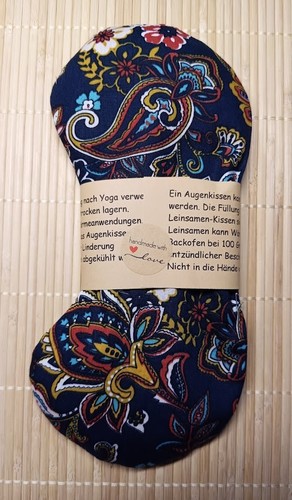 nach Yoga verwe
rocken lagern.
rmeanwendungen.
s Augenkisse
Linderung
abgekühlt w
handmade with
Love
Ein Augenkissen ka
werden. Die Füllung
Leinsamen-Kissen
Leinsamen kann Wär
Backofen bei 100 Gr
ntzündlicher Besc
Nicht in die Hände